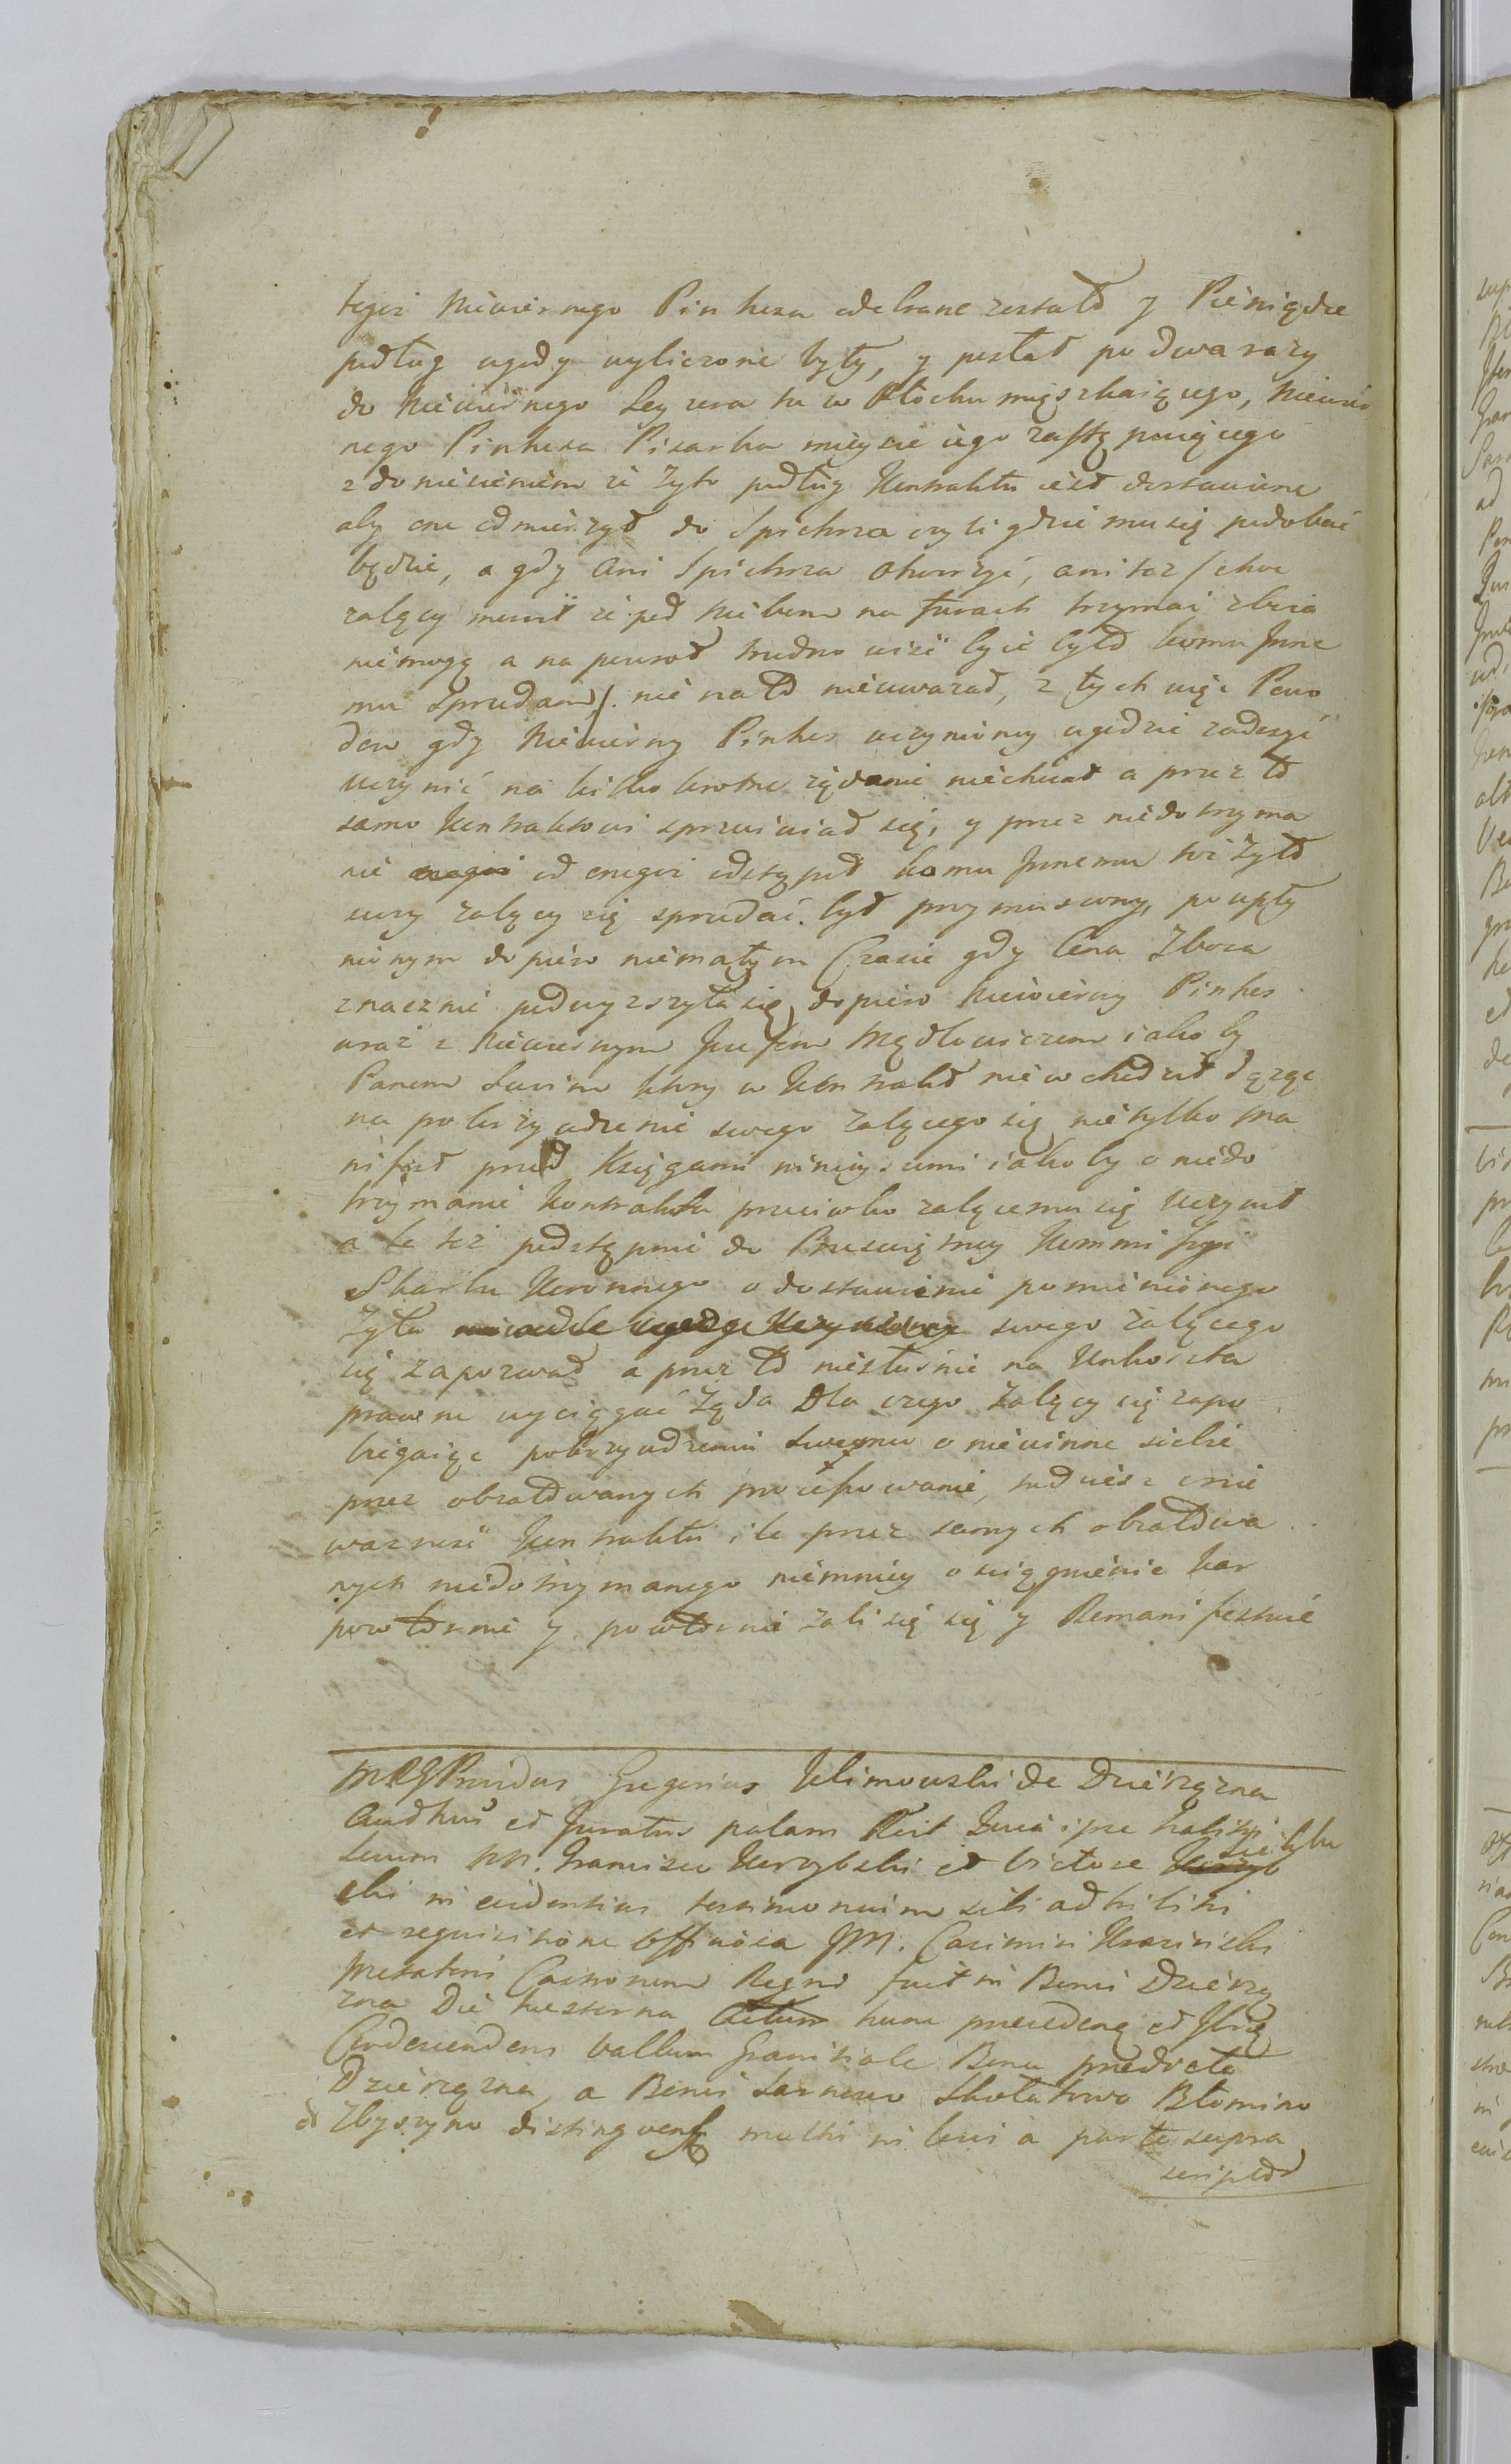 tegoż Niewiernego Pinkesa odebrane zostało y Pieniądze
podług ugody wyliczone były, y posłał po dwa razy
do Niewiernego Leyzera tu w Płocku mięszkaiącego, Niewier
nego Pinkesa Pisarka mieysce iego zastępuiącego
z doniesieniem że Żyto podług Kontraktu iest dostawione
aby one odmierzył do Spichrza czyli gdzie mu się podobać
będzie, a gdy ani Spichrza otworzyć, ani też /chce
żalący mówił że pod Niebem na furach trzymać zboża
niemogę a na powrot trudno wieść bo byłoby komu Inne
mu Sprzedam/. nie na to nieuważał, z tych więc Powo
dow gdy Niewierny Pinkes uczynioney ugodzie zadosyć
uczynić na kilkokrotne żądanie niechciał a przez to
samo Kontraktowi sprzeciwiał się, y przez niedotrzyma
nie od onegoż odstąpił komu Innemu toż Żyto
swoy żalący się sprzedać był przymuszony, po upły
nionym dopiero niemałym Czasie gdy Cena Zboża
znacznie podwyższyła się, dopiero Niewierny Pinkes
wraz z Niewiernym Jozefem Mędlowiczem iakoby
Panem Swoim który w Kontrakt niewchodził dążąc
na pokrzywdzenie swego żalącego się nietylko Ma
nifest przed Xsięgami ninieyszemi iakoby o niedo
trzymanie Kontraktu przeciwko żalącemu się uczynił
ale też podstępnie do Prześwietney Kommissyi
Skarbu Koronnego o dostawienie pomienionego
Żyta swego żalącego
się zapozwał a przez to niesłusznie na Unkoszta
prawne wyciągać Żąda Dla czego Żalący się zapo
biegaiąc pokrzywdzeniu swoiemu o niewinne siebie
przez obżałowanych processowanie, tudziesz o nie
ważność Kontraktu ile przez samych obżałowa
nych niedotrzymanego niemniey o ściągnienie kar
powtornie y powtornie żali się się y Remanifestuie

MRG Providus Gregorius Klimowski de Dzierzązna
Authus et Juratus palam Recit Quia ipse habitis
secum NN. Francisco Korzybski et Victore Sieklu
cki in evidentius testimonium sibi adhibitis
et requisitione Officiosa JM. Casimiri Krasinski
Metatoris Castrorum Regni fuit in Bonis Dzierzą
zna Die hesterna Actum hunc precedente et Ibiq
Condescendens vallum Granitiale Bona predicta
Dzierzązna, a Bonis Sarnowo Skołatowo Błomino
et Zbyszyno distinguens multis in locis a parte supra
script